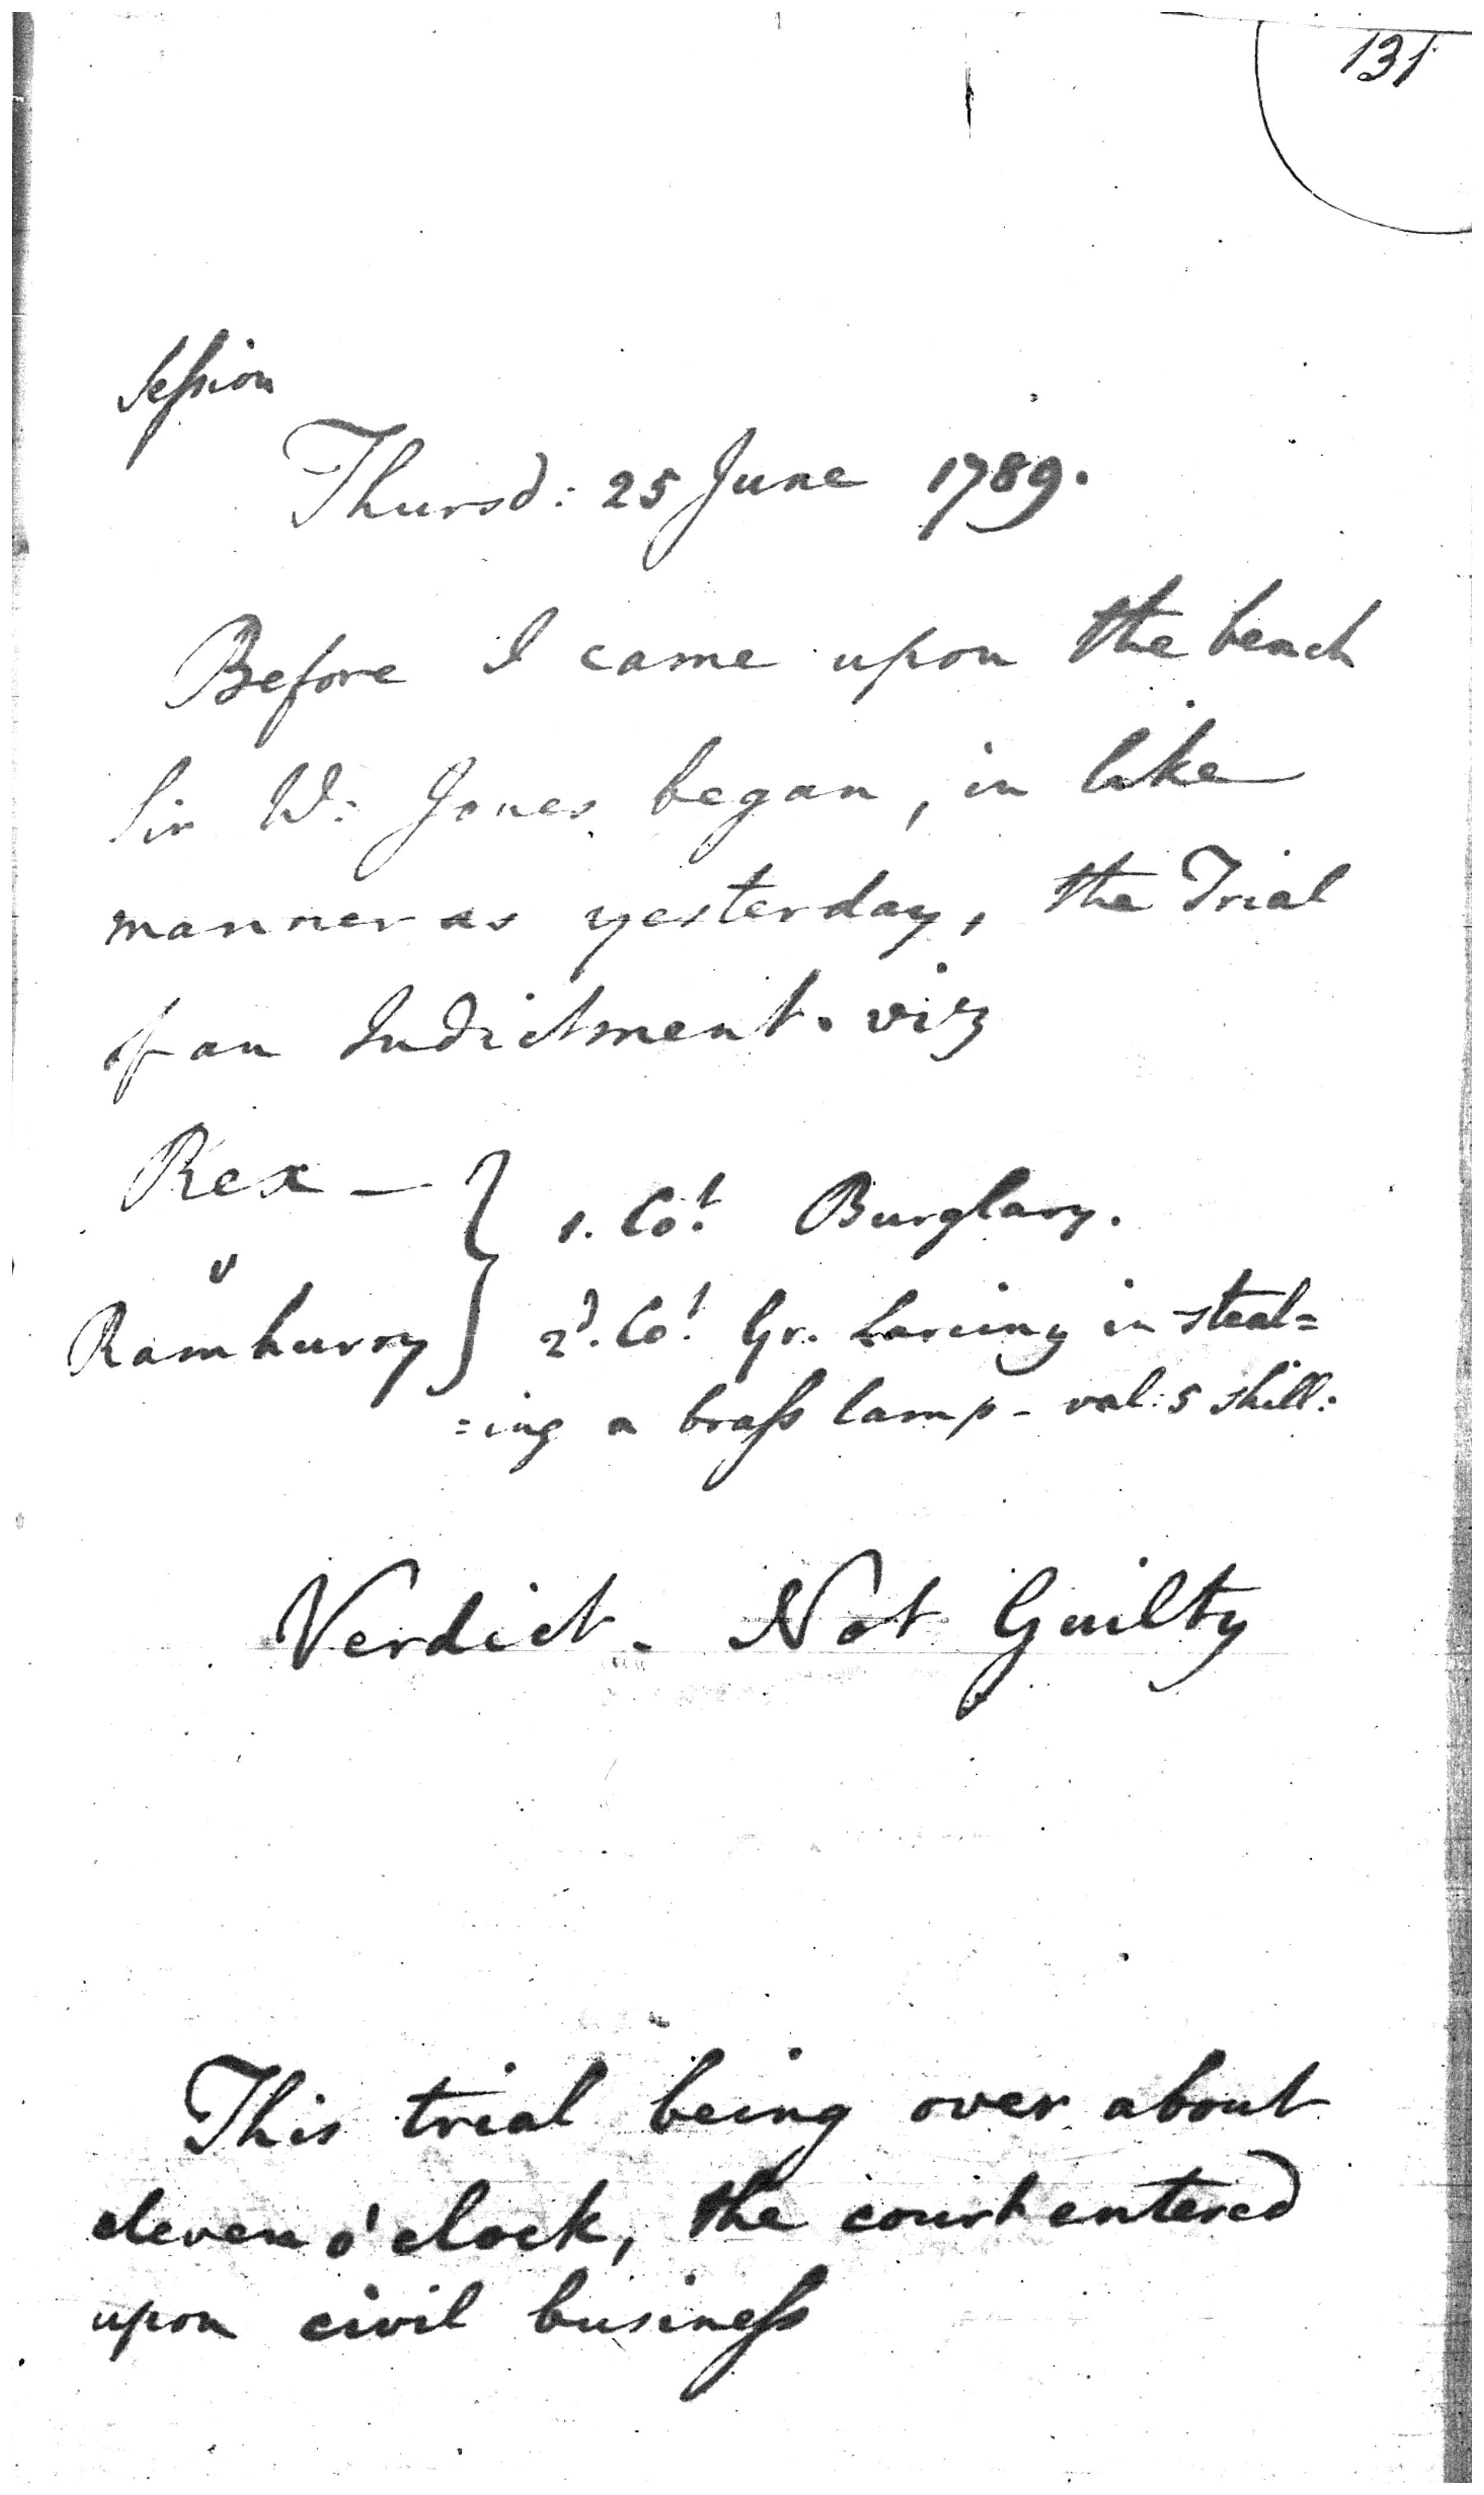 131
Seſsion
Thursd: 25 June 1789.
Before I came upon the bench
Sir W: Jones began, in like
manner as yesterday, the Trial
of an Indictment. viz
Rex —
1. Cot. Burglary.
v
Ramhurry
2d. Cot. Gr. Larciny in steal=
=ing a braſs lamp - val: 5 shill:
Verdict. Not Guilty
This trial being over about
eleven o'clock, the court entered
upon civil busineſs